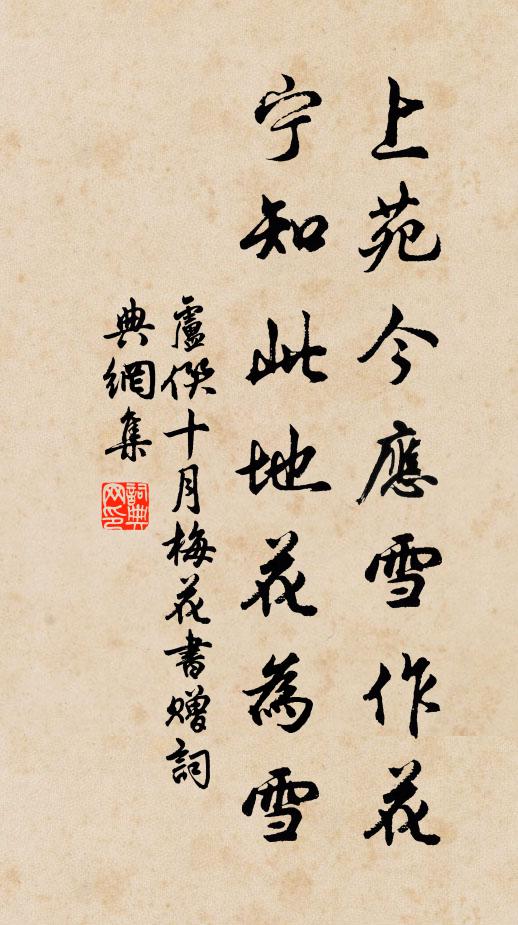 上苑今應雪作花
宁知此地花為雪
盧僎十月梅花書贈詞
典網集
詞典
网印